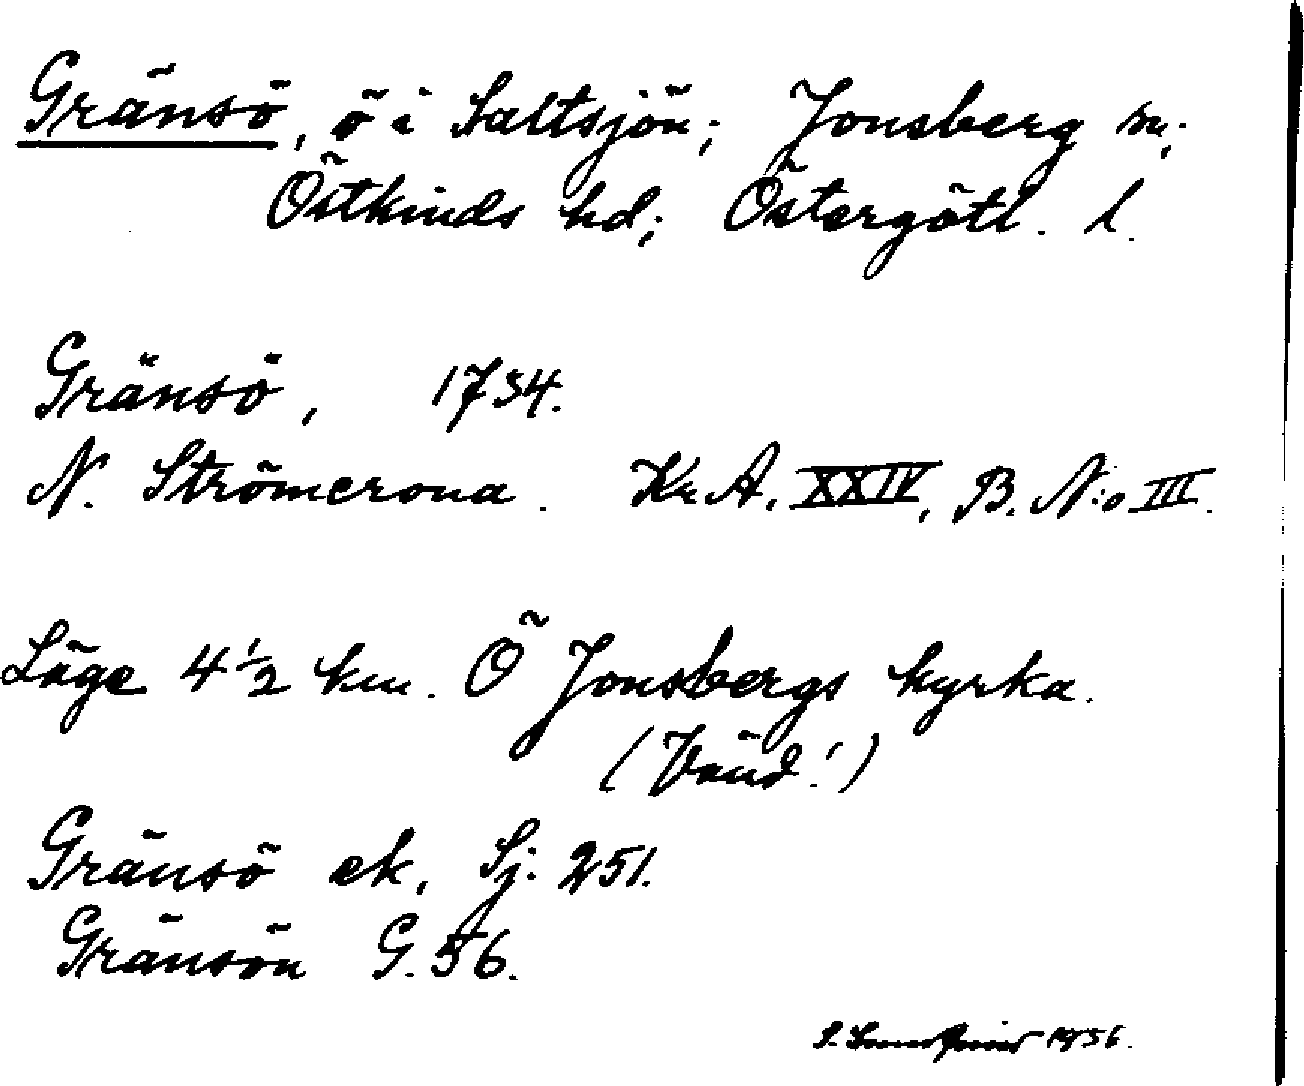 Gränsö, ö i Saltsjön; Jonsberg sn;
Östkinds hd; Östergötl. l.
Gränsö, 1734.
N. Strömcrona. Kr. A. XXIV, B. N:o III.
Läge 4 1/2 km. Ö Jonsbergs kyrka.
(Vänd!)
Gränsö ek. Sj. 251.
Gränsön G. 56.
1936.